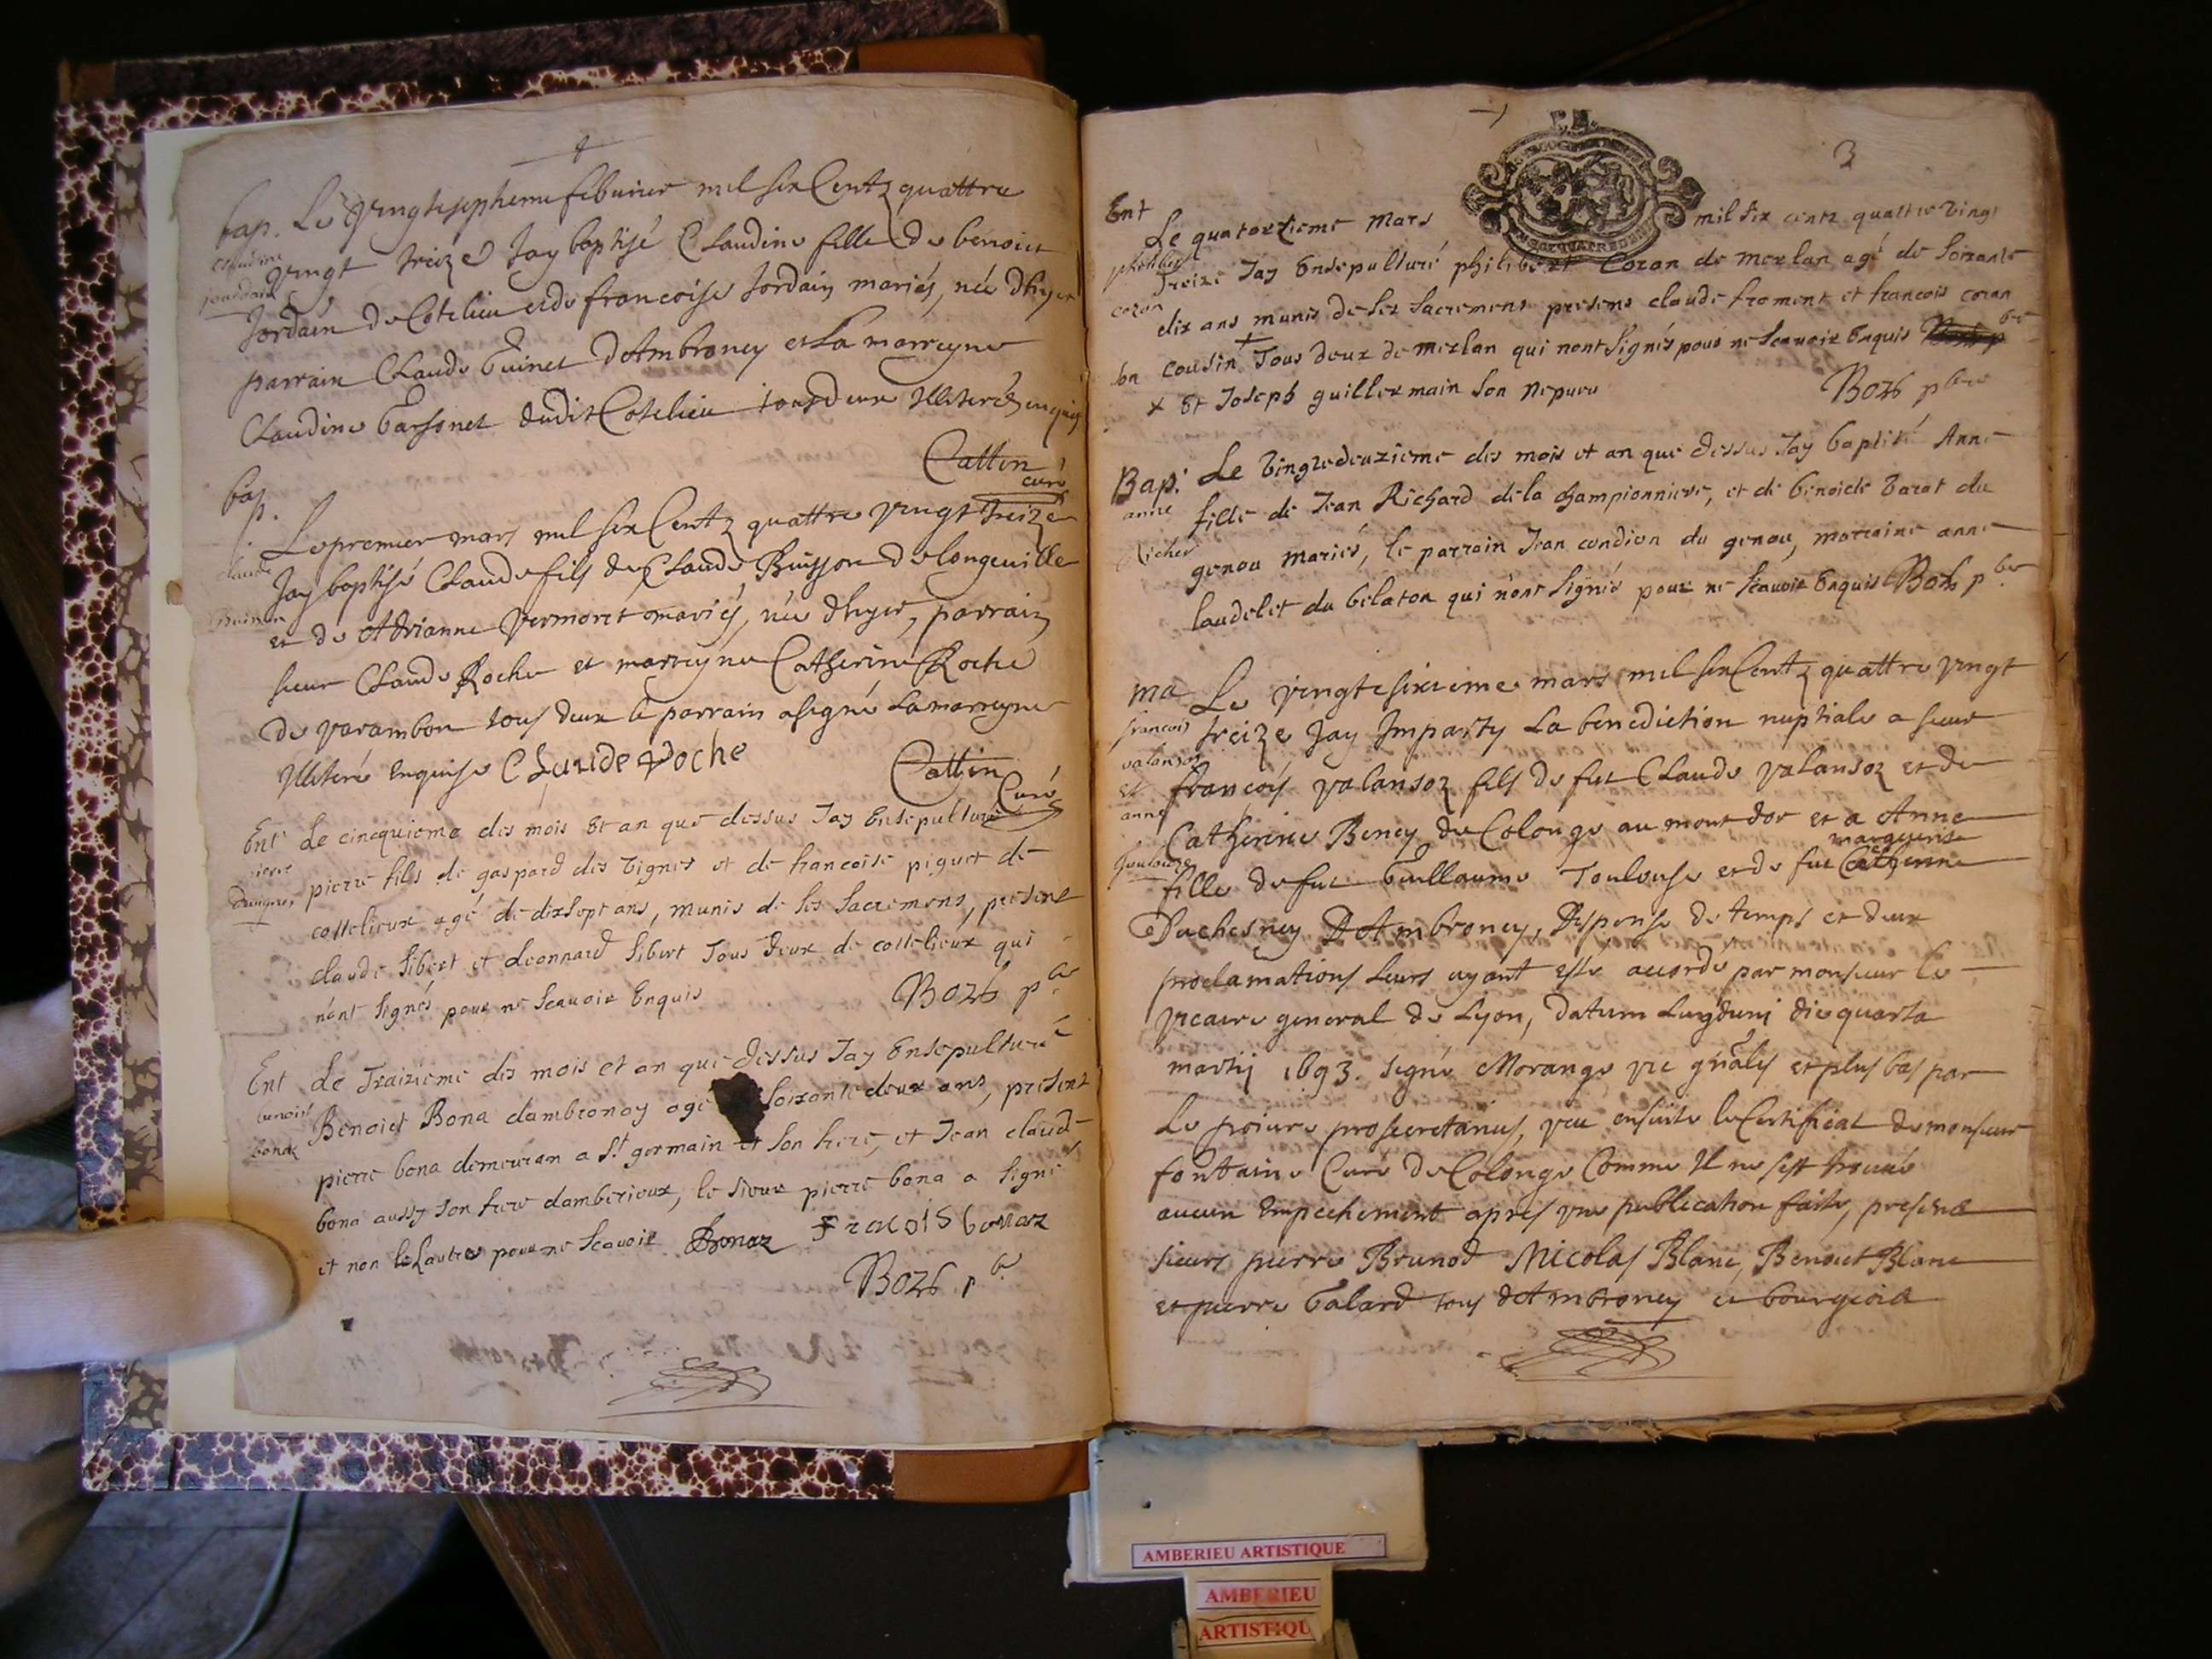 bap. Le vingtsepthieme febvrier mil six Centz quattre
Claudine
jourdain
vingt treize Jay baptisé Claudine fille de benoict
Jordain de Cotelieu et de francoise Jordain mariés, née d'hyer
parrain Claude Guinet d'Ambroney et La marreyne
Claudine Garsonet dudit Cotelieu tous deux Illiterés enquis
Cattin
curé
bap.
Le premier mars mil six Centz quattre vingt treize
claude
Jay baptisé Claude fils de Claude Buisson de longeville
Buisson
et de Adrianne Vermoret mariés, née d'hyer, parrain
sieur Claude Roche et marreyne Catherine Roche
de varambon tous deux le parrain a signé La marreyne
Illiteré Enquise Claude Roche
Cattin
Curé
Ent Le cincquieme des mois et an que dessus Jay Ensepulturé
pierre
pierre fils de gaspard des vignes et de francoise piquet de
cottelieux agé de dixsept ans, munis de ses sacremens, present
claude Sibert et Leonnard Sibert Tous deux de cottelieux qui
n'ont signés pour ne scavoir Enquis
Bozb pbre
Ent Le Traizieme des mois et an que dessus Jay Ensepulturé
benoist
bonaz
Benoict Bona dambronay agé soixante deux ans, present
pierre bona demeuran a St germain et son frere, et Jean claude
bona aussy son frere damberieux, le sieur pierre bona a signé
et non le Lautre pour ne scavoir Bonaz fracois bonaz
Bozb pbre
3
Ent
Le quatorzieme Mars mil six centz quattre vingt
philibert
coran
treize Jay Ensepulturé philibert Coran de merlan agé de soixante
dix ans munis de ses sacremens presens claude froment et francois coran
son cousin Tous deux de merlan qui nont signés pour ne scavoir Enquis
x et Joseph guillermain son nepveu
Bozb pbre
Bap. Le vingtedeuzieme des mois et an que dessus Jay baptisé Anne
anne
Richar
fille de Jean Richard de la championniere, et de benoicte barat du
genou mariés, le parrain Jean condion du genou, marraine anne
laudelet du belaton qui n'ont signés pour ne scavoir Enquis Bozb pbre
ma Le vingtesixieme mars mil six Centz quattre vingt
francois
valansot
et
anne
toulouze
treize Jay Imparty La benediction nuptiale a sieur
francois valansoz fils de fut Claude valansoz et de
Catherine Beney de Colonge au mont dor et a Anne
marguerite
fille de fut Guillaume Toulouse et de fut Catherine
Duchesney D'Ambroney, Dispense de temps et deux
proclamations Leurs ayant esté accordé par monsieur le
vicaire general de Lyon, Datum Lugduni die quarta
martij 1693. signé Morange vic gnalis et plus bas par
Le prieure prosecretarius, veu ensuite le Certificat de monsieur
fontaine Curé de Colonge Comme Il ne s'est trouvé
aucun Empechement apres une publication faite, presence
sieurs pierre Brunod Nicolas Blanc, Benoict Blanc
et pierre Galard tous d'Ambroney et bourgeois
AMBERIEU ARTISTIQUE
AMBERIEU
ARTISTIQU